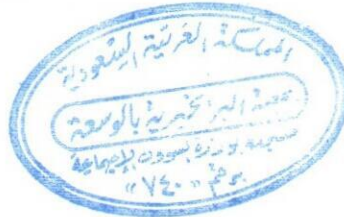 المملكة العربية السعودية
جمعية البر الخيرية بالوسعة
مسجلة بوزارة الشؤون الإجتماعية
برقم «٧٤٠»